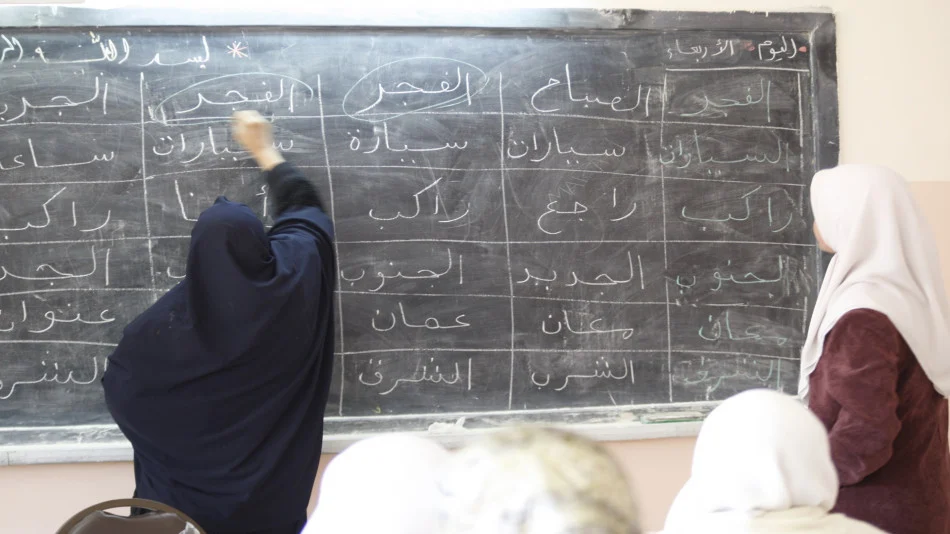 اليوم الأربعاء * بسم الله
الفجر الصباح الفجر الفجر
السيارات سيارات سيارة سيارات
راكب راجع راكب راكب
الجنوب الجديد الجنوب
معان معان عمان عنوان
الشرق الشرب الشرق